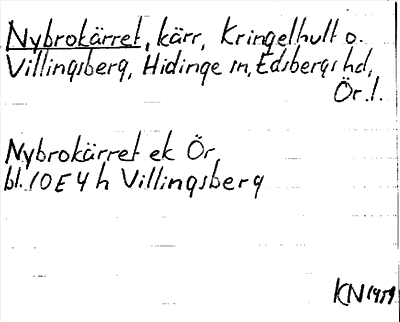 Nybrokärret, kärr, Kringelhult o.
Villingsberg, Hidinge sn, Edsbergs hd,
Ör. l.
Nybrokärret ek Ör,
bl. 10 E 4 h Villingsberg
KN